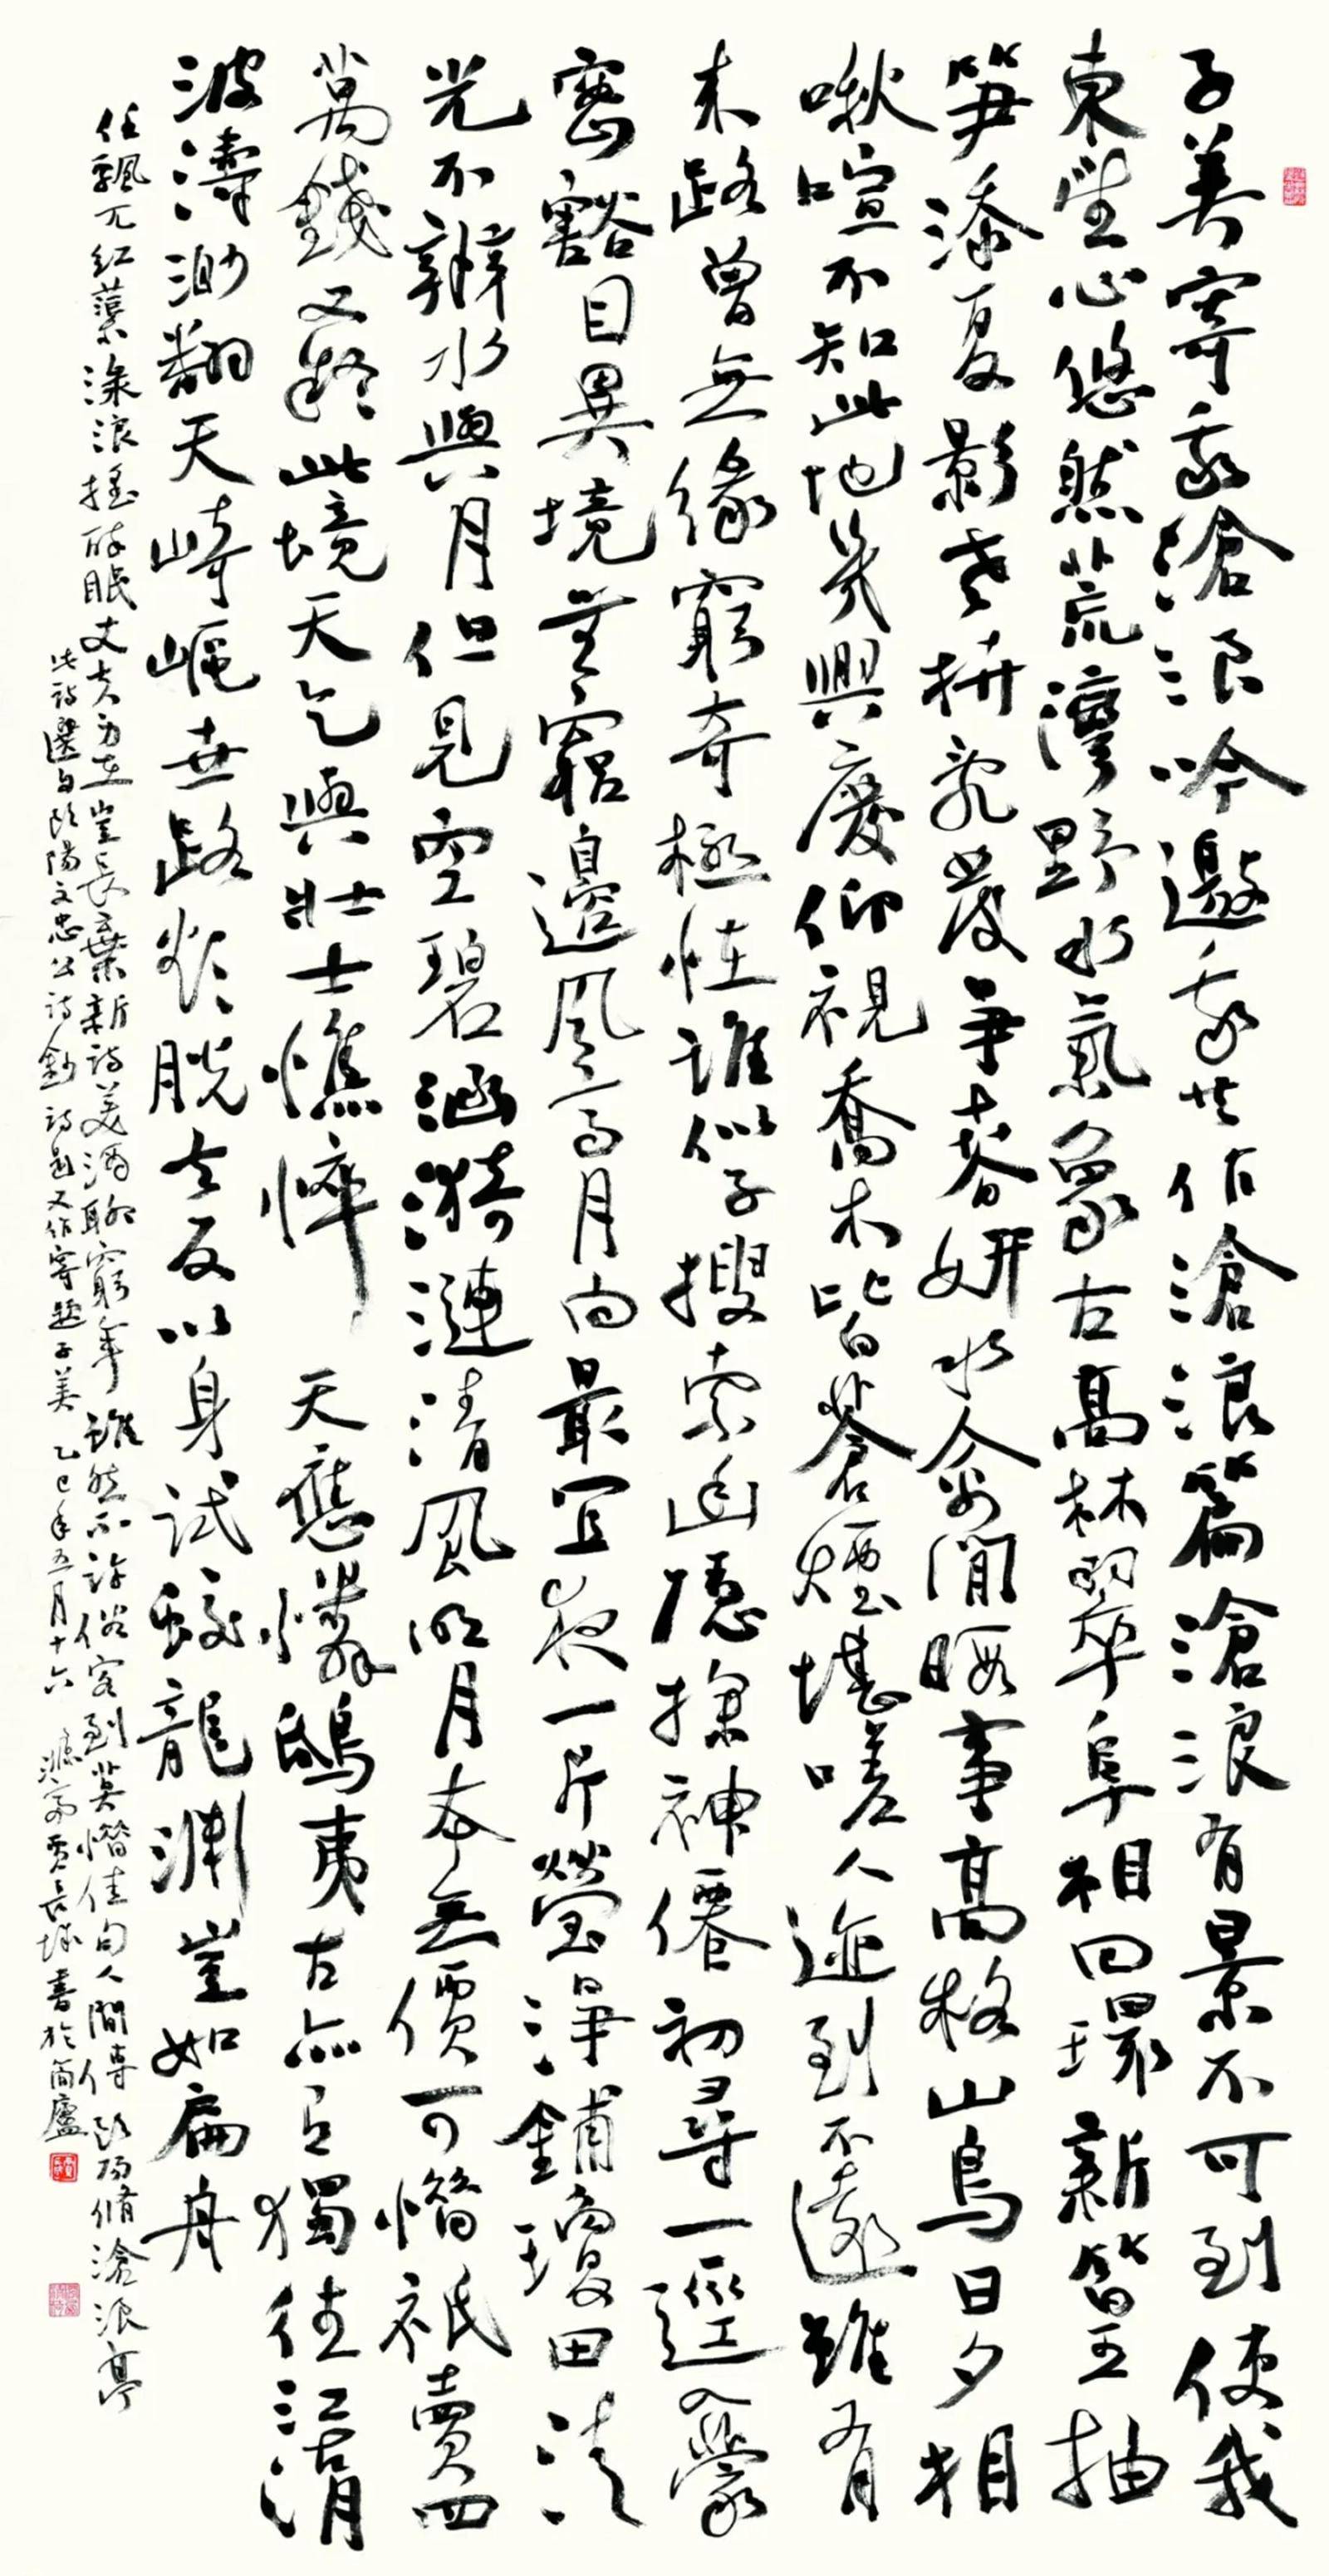 子美寄我滄浪吟邀我共作滄浪篇滄浪有景不可到使我
東望心悠然荒灣野水氣象古高林翠阜相回環新篁玉抽
笋添夏影老枿亂發爭春妍水禽閒暇事高格山鳥日夕相
啾喧不知此地幾興廢仰視喬木皆蒼煙堪嗟人迹到不遠雖有
來路曾無緣窮奇極怪誰似子搜索幽隱探神僊初尋一逕入蒙
密豁目異境無窮邊風高月白最宜夜一片瑩淨鋪瓊田清
光不辨水與月但見空碧涵漪漣清風明月本無價可惜祇賣四
萬錢又疑此境天乞與壯士憔悴天應憐鴟夷古亦有獨往江湖
波濤渺翻天崎嶇世路欲脫去反以身試蛟龍淵豈如扁舟
任飄兀紅蕖淥浪搖醉眠丈夫身在豈長棄新詩美酒聊窮年雖然不許俗客到莫惜佳句人間傳歐陽脩滄浪亭
此詩選自歐陽文忠公詩鈔詩題又作寄題子美乙巳年五月十六濂齋賈長城書於簡廬